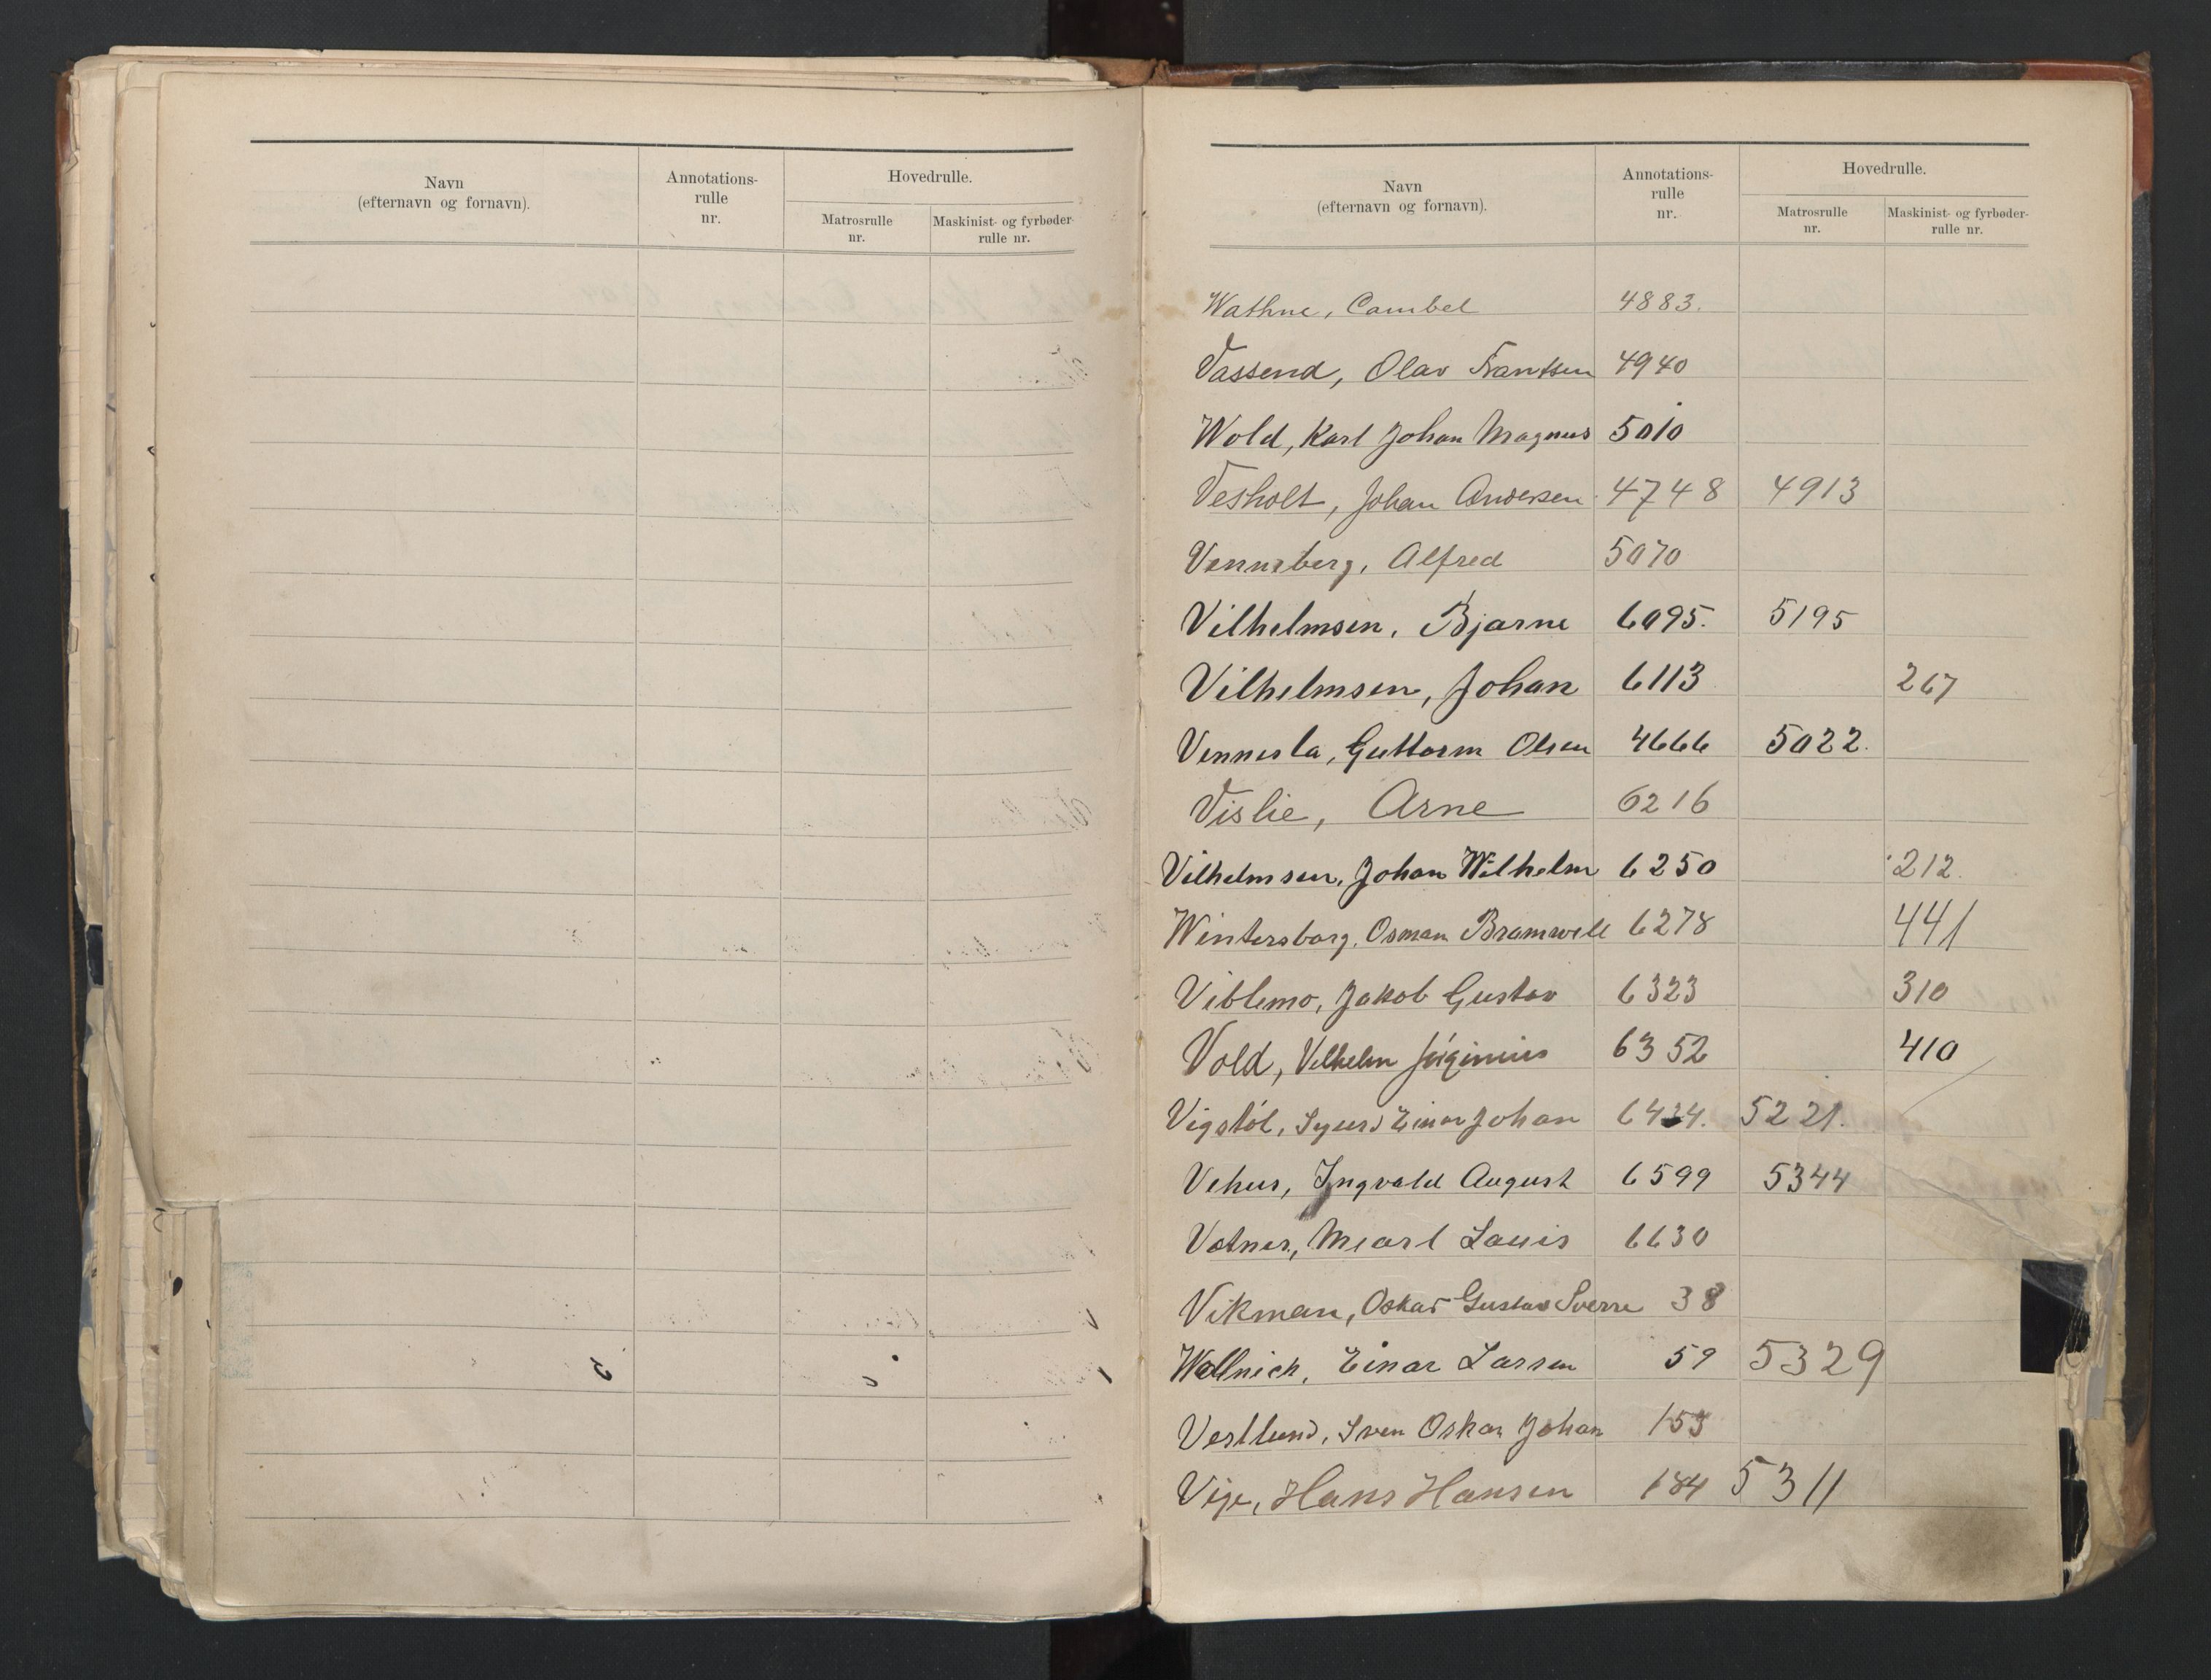 Navn
(efternavn og fornavn).
Annotations-
rulle
nr.
Hovedrulle.
Matrosrulle
nr.
Maskinist- og fyrbøder-
rulle nr.
Navn
(efternavn og fornavn).
Annotations-
rulle
nr.
Hovedrulle.
Matrosrulle
nr.
Maskinist- og fyrbøder-
rulle nr.
Wathne, Cambel 4883.
Vassend, Olav Frantsen 4940
Wold, Karl Johan Magnus 5010
Vesholt, Johan Andersen 4748 4913
Venneberg, Alfred 5070
Vilhelmsen, Bjarne 6095. 5195
Vilhelmsen, Johan 6113 267
Vennesla, Guttorm Olsen 4666 5022.
Vislie, Arne 6216
Vilhelmsen, Johan Wilhelm 6250 212.
Wintersborg, Osman Bramwell 6278 441
Viblemo, Jakob Gustav 6323 310
Vold, Vilhelm 6352 410
Vigstöl, Sigurd Einar Johan 6424. 5221.
Vehus, Ingvald August 6599 5344
Votner, Mearl Louis 6630
Vikman, Oskar Gustav Sverre 38
Wallnich, Einar Larsen 59 5329
Vestlund, Sven Oskar Johan 153
Vige, Hans Hansen 184 5311